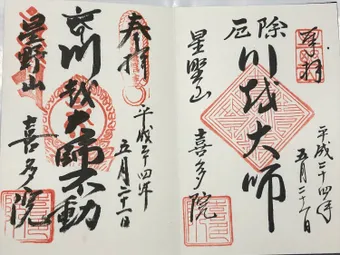 奉拝
厄除
川越大師
星野山
喜多院
平成二十四年
五月二十一日
奉拝
川越大師不動
星野山
喜多院
平成廿四年
五月二十一日